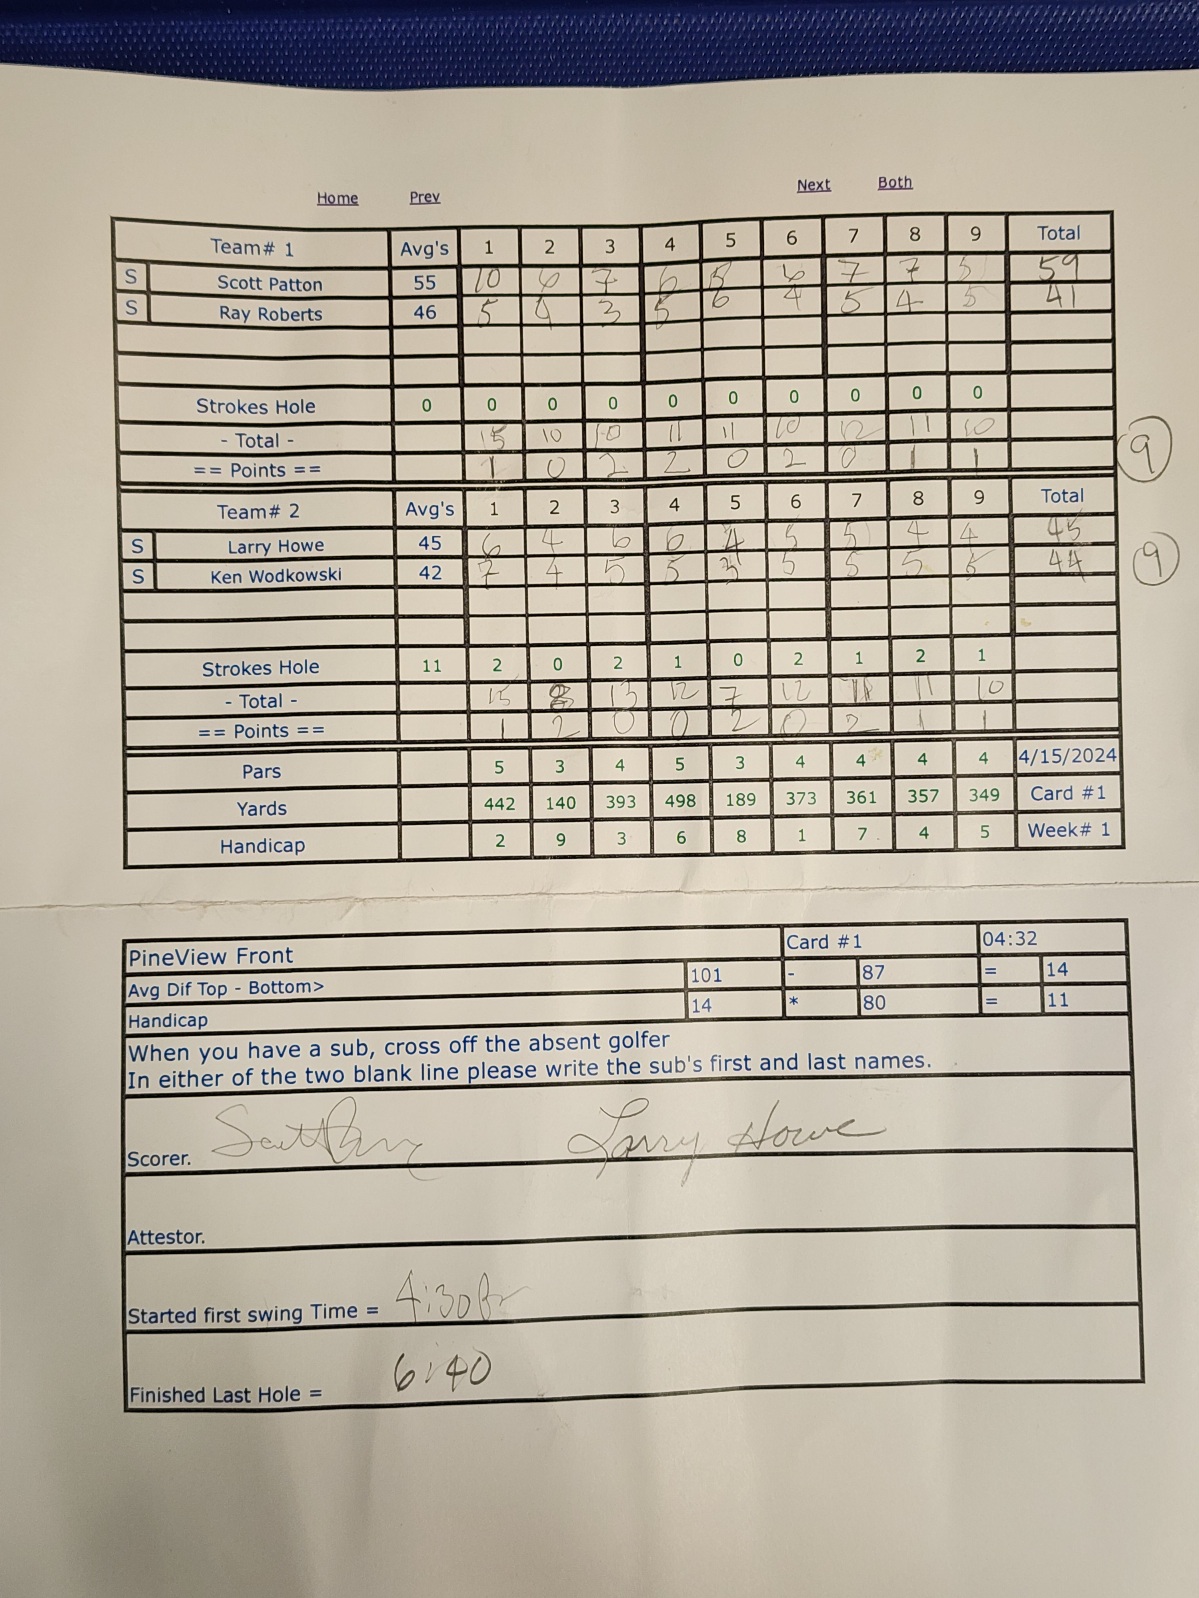 Home Prev Next Both
Team# 1 Avg's 1 2 3 4 5 6 7 8 9 Total
S Scott Patton 55 10 6 7 6 5 6 7 7 5 59
S Ray Roberts 46 5 4 3 5 6 4 5 4 5 41
Strokes Hole 0 0 0 0 0 0 0 0 0 0
- Total - 15 10 10 11 11 10 12 11 10
== Points == 1 0 2 2 0 2 0 1 1 9
Team# 2 Avg's 1 2 3 4 5 6 7 8 9 Total
S Larry Howe 45 6 4 6 6 4 5 5 4 4 45
S Ken Wodkowski 42 7 4 5 5 3 5 5 5 5 44 9
Strokes Hole 11 2 0 2 1 0 2 1 2 1
- Total - 15 8 13 12 7 12 11 11 10
== Points == 1 2 0 0 2 0 2 1 1
Pars 5 3 4 5 3 4 4 4 4 4/15/2024
Yards 442 140 393 498 189 373 361 357 349 Card #1
Handicap 2 9 3 6 8 1 7 4 5 Week# 1
PineView Front Card #1 04:32
Avg Dif Top - Bottom> 101 - 87 = 14
Handicap 14 * 80 = 11
When you have a sub, cross off the absent golfer
In either of the two blank line please write the sub's first and last names.
Scorer. Larry Howe
Attestor.
Started first swing Time = 4:30
Finished Last Hole = 6:40